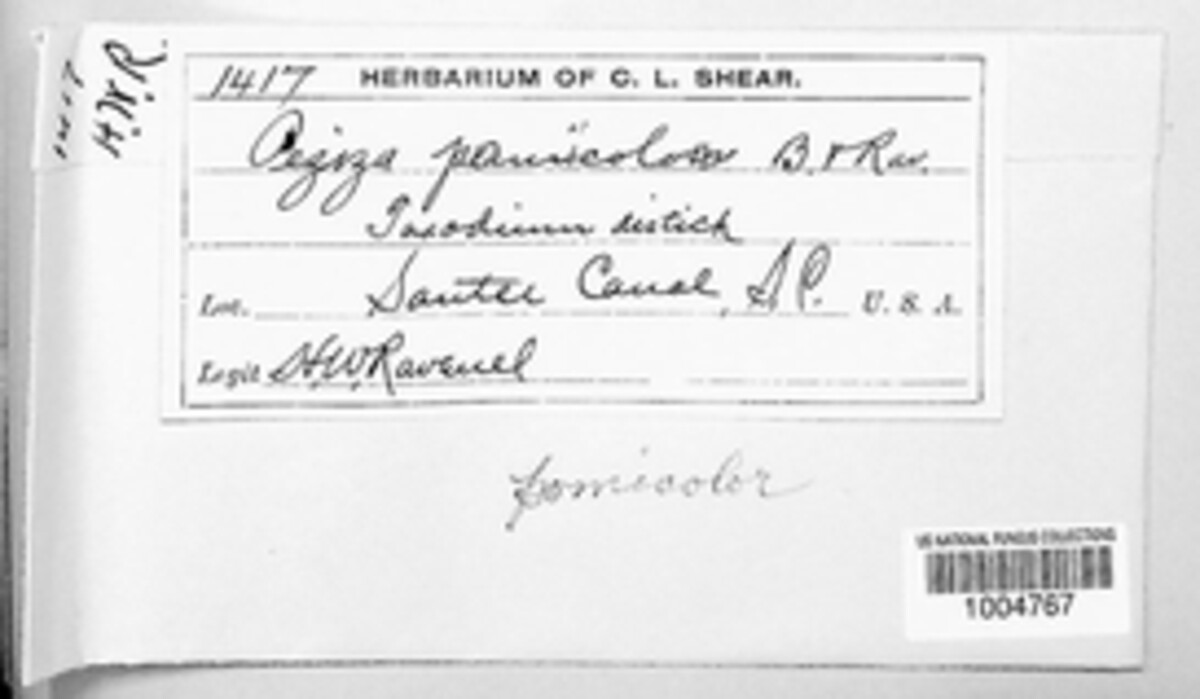 1417
H.W.R.
1417 HERBARIUM OF C. L. SHEAR.
Peziza pomicolor B. & Rav.
Taxodium distich
Loc. Santee Canal, S.C. U. S. A.
Legit H.W. Ravenel
pomicolor
US NATIONAL FUNGUS COLLECTIONS
1004767